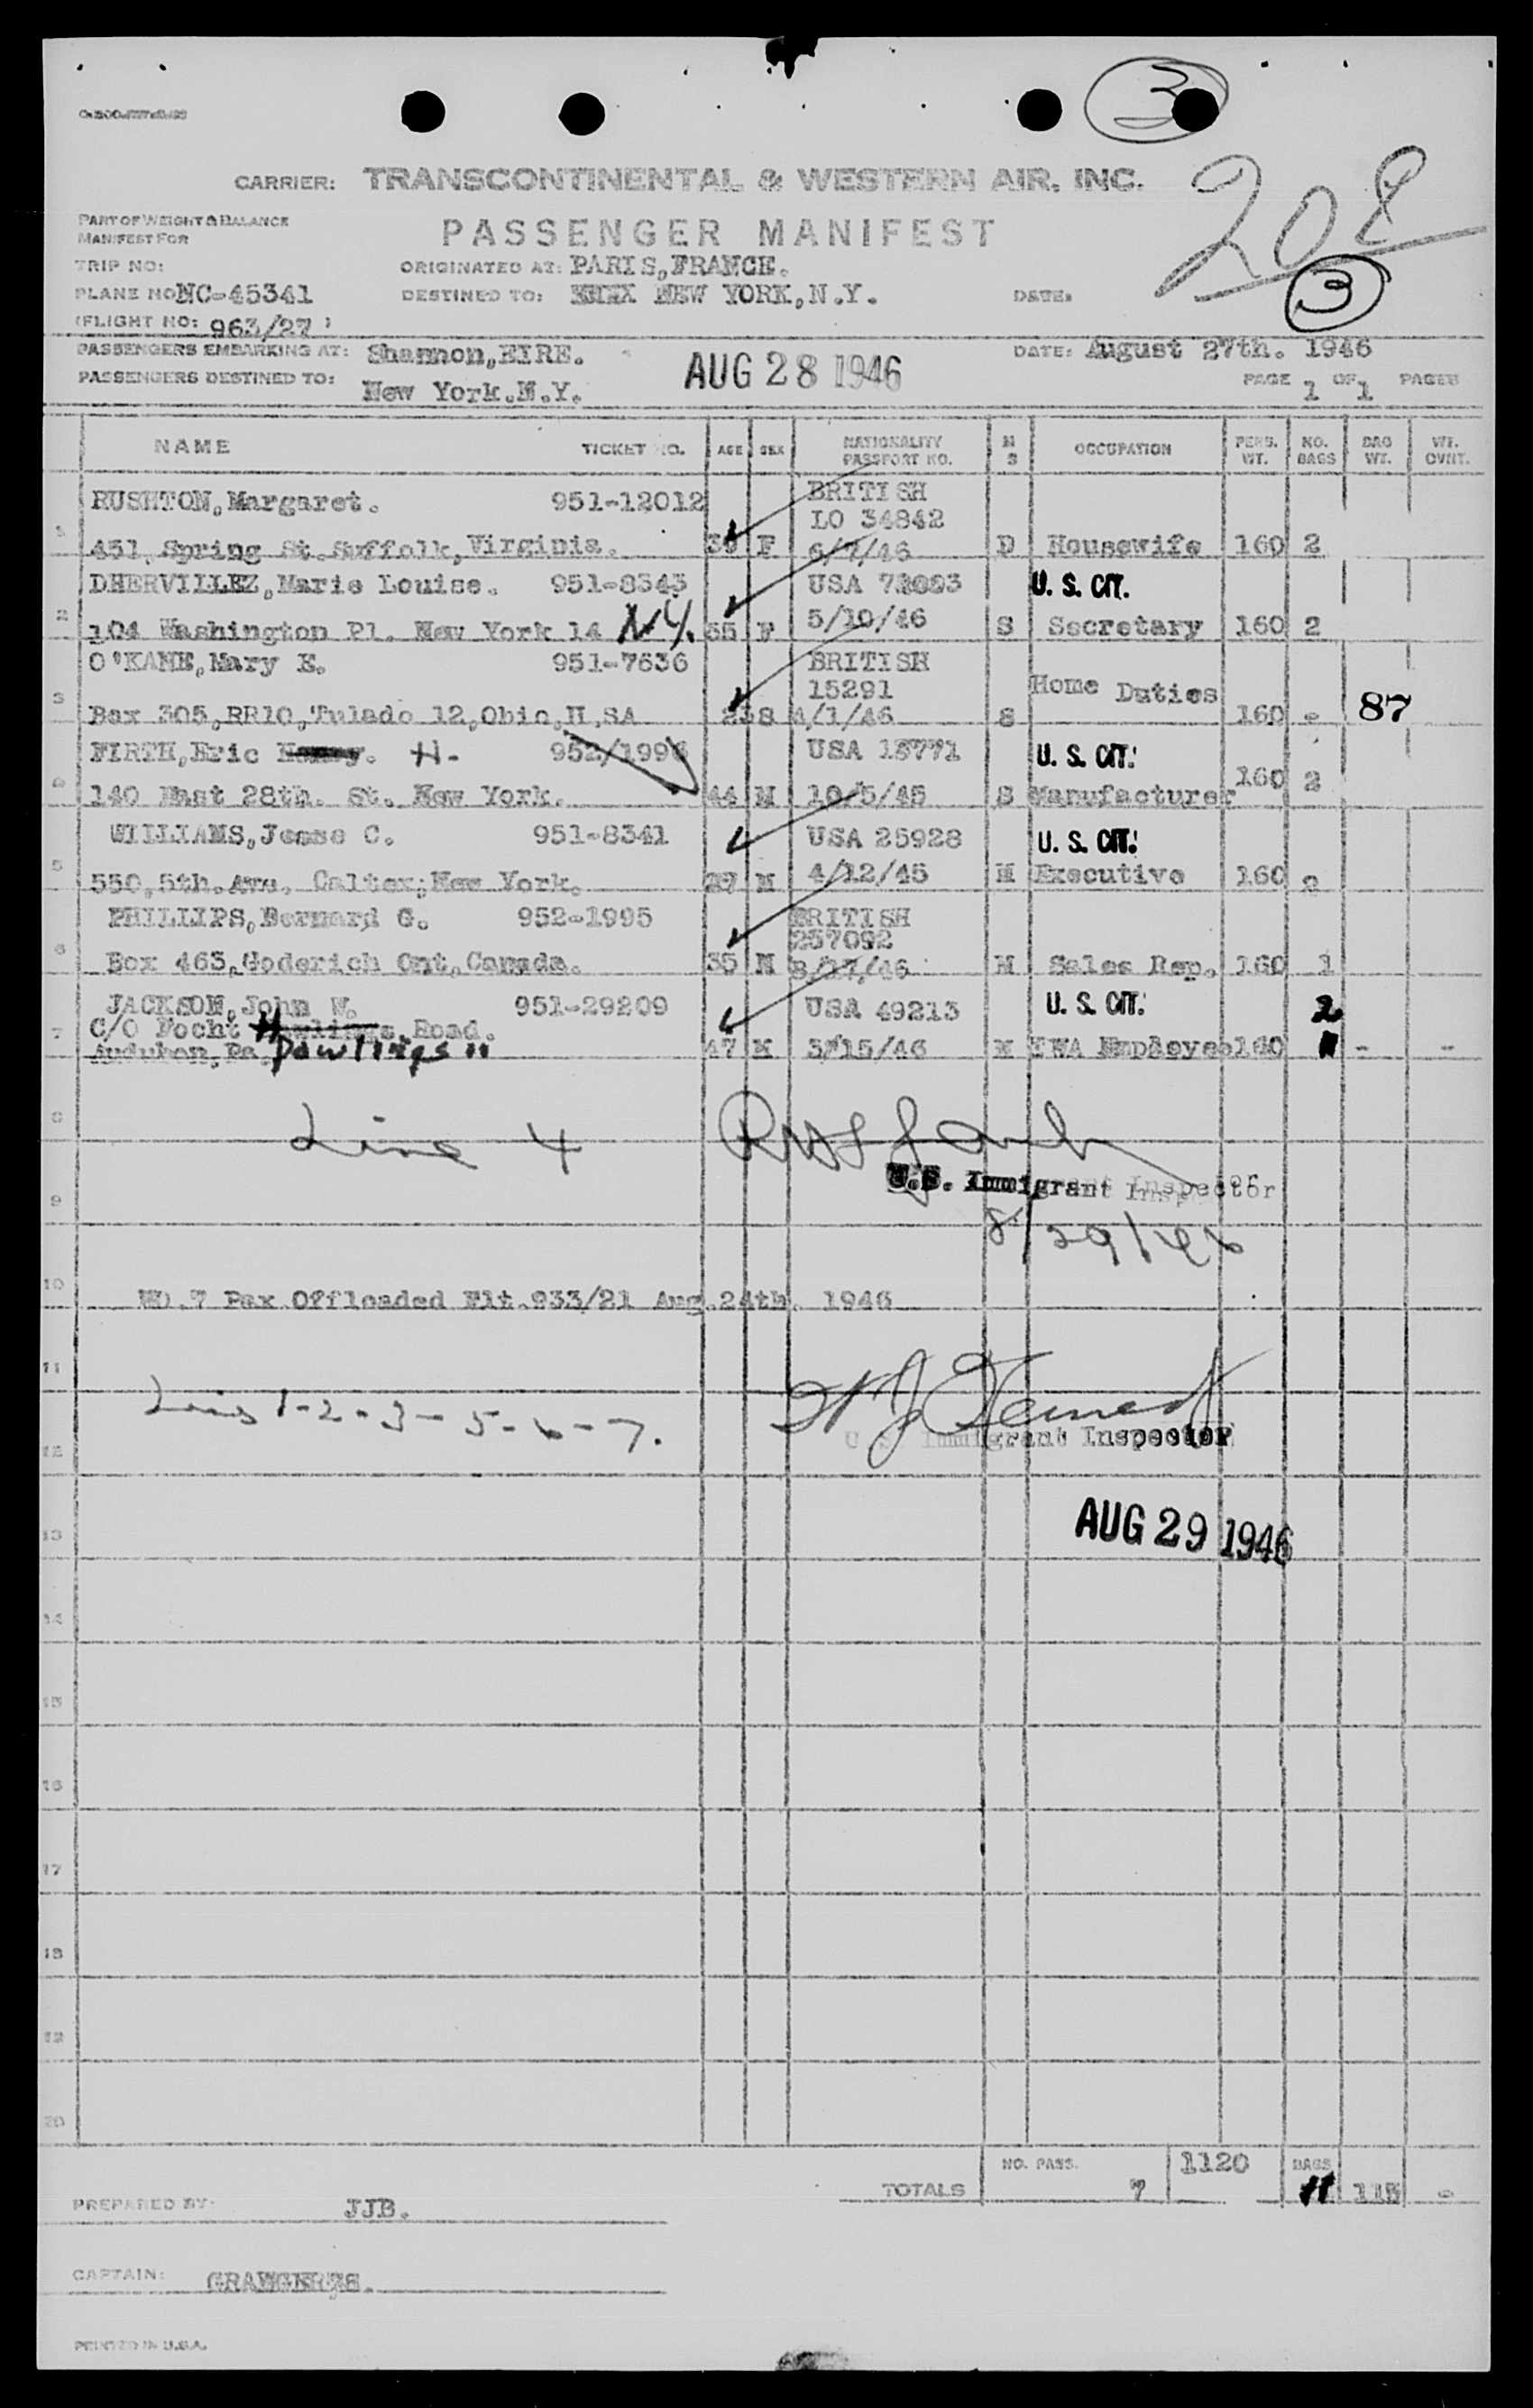 3
CARRIER: TRANSCONTINENTAL & WESTERN AIR, INC.
208
PART OF WEIGHT & BALANCE
MANIFEST FOR
PASSENGER MANIFEST
TRIP NO:
ORIGINATED AT: PARIS,FRANCE.
PLANE NO NC-45341
DESTINED TO: NEW YORK,N.Y.
DATE:
3
(FLIGHT NO: 963/27 )
PASSENGERS EMBARKING AT: Shannon,EIRE.
DATE: August 27th. 1946
PASSENGERS DESTINED TO: New York.N.Y.
AUG 28 1946
PAGE 1 OF 1 PAGES
NAME TICKET NO. AGE SEX NATIONALITY PASSPORT NO. M S OCCUPATION PERS. WT. NO. BAGS BAG WT. WT. OVHT.
RUSHTON,Margaret. 951-12012 BRITISH
LO 34842
1 451, Spring St.Suffolk,Virginia. F 6/7/46 D Housewife 160 2
DHERVILLEZ,Marie Louise. 951-8343 USA U. S. CIT.
2 104 Washington Pl. New York 14 N.Y. 55 F 5/10/46 S Secretary 160 2
O'KANE,Mary E. 951-7636 BRITISH
15291 Home Duties
3 Box 305,RR10,Tulado 12,Ohio,U,SA S 4/1/46 S 160 87
FIRTH,Eric H. 952/1996 USA 13771 U. S. CIT.
4 140 East 28th. St. New York. 44 M 10/5/45 S Manufacturer 160 2
WILLIAMS,Jesse C. 951-8341 USA 25928 U. S. CIT.
5 550,5th.Ave. Caltex,New York. M 4/12/45 M Executive 160 2
PHILLIPS,Bernard G. 952-1995 BRITISH
257092
6 Box 463,Goderich Ont,Canada. 35 M M Sales Rep. 160 1
JACKSON,John W. 951-29209 USA 49213 U. S. CIT. 2
C/O Focht Road.
7 Audubon.Pa. Pawlings " 47 M 3/15/46 M TWA Employee 160 - -
8 Line 4
U.S. Immigrant Inspector
9
8/29/46
10 7 Pax Offloaded Flt.933/21 Aug.24th. 1946
11
Lines 1-2-3-5-6-7.
12 U S Immigrant Inspector
AUG 29 1946
13
14
15
16
17
18
19
20
TOTALS NO. PASS. 7 1120 BAGS 11
PREPARED BY: JJB.
CAPTAIN:
PRINTED IN U.S.A.